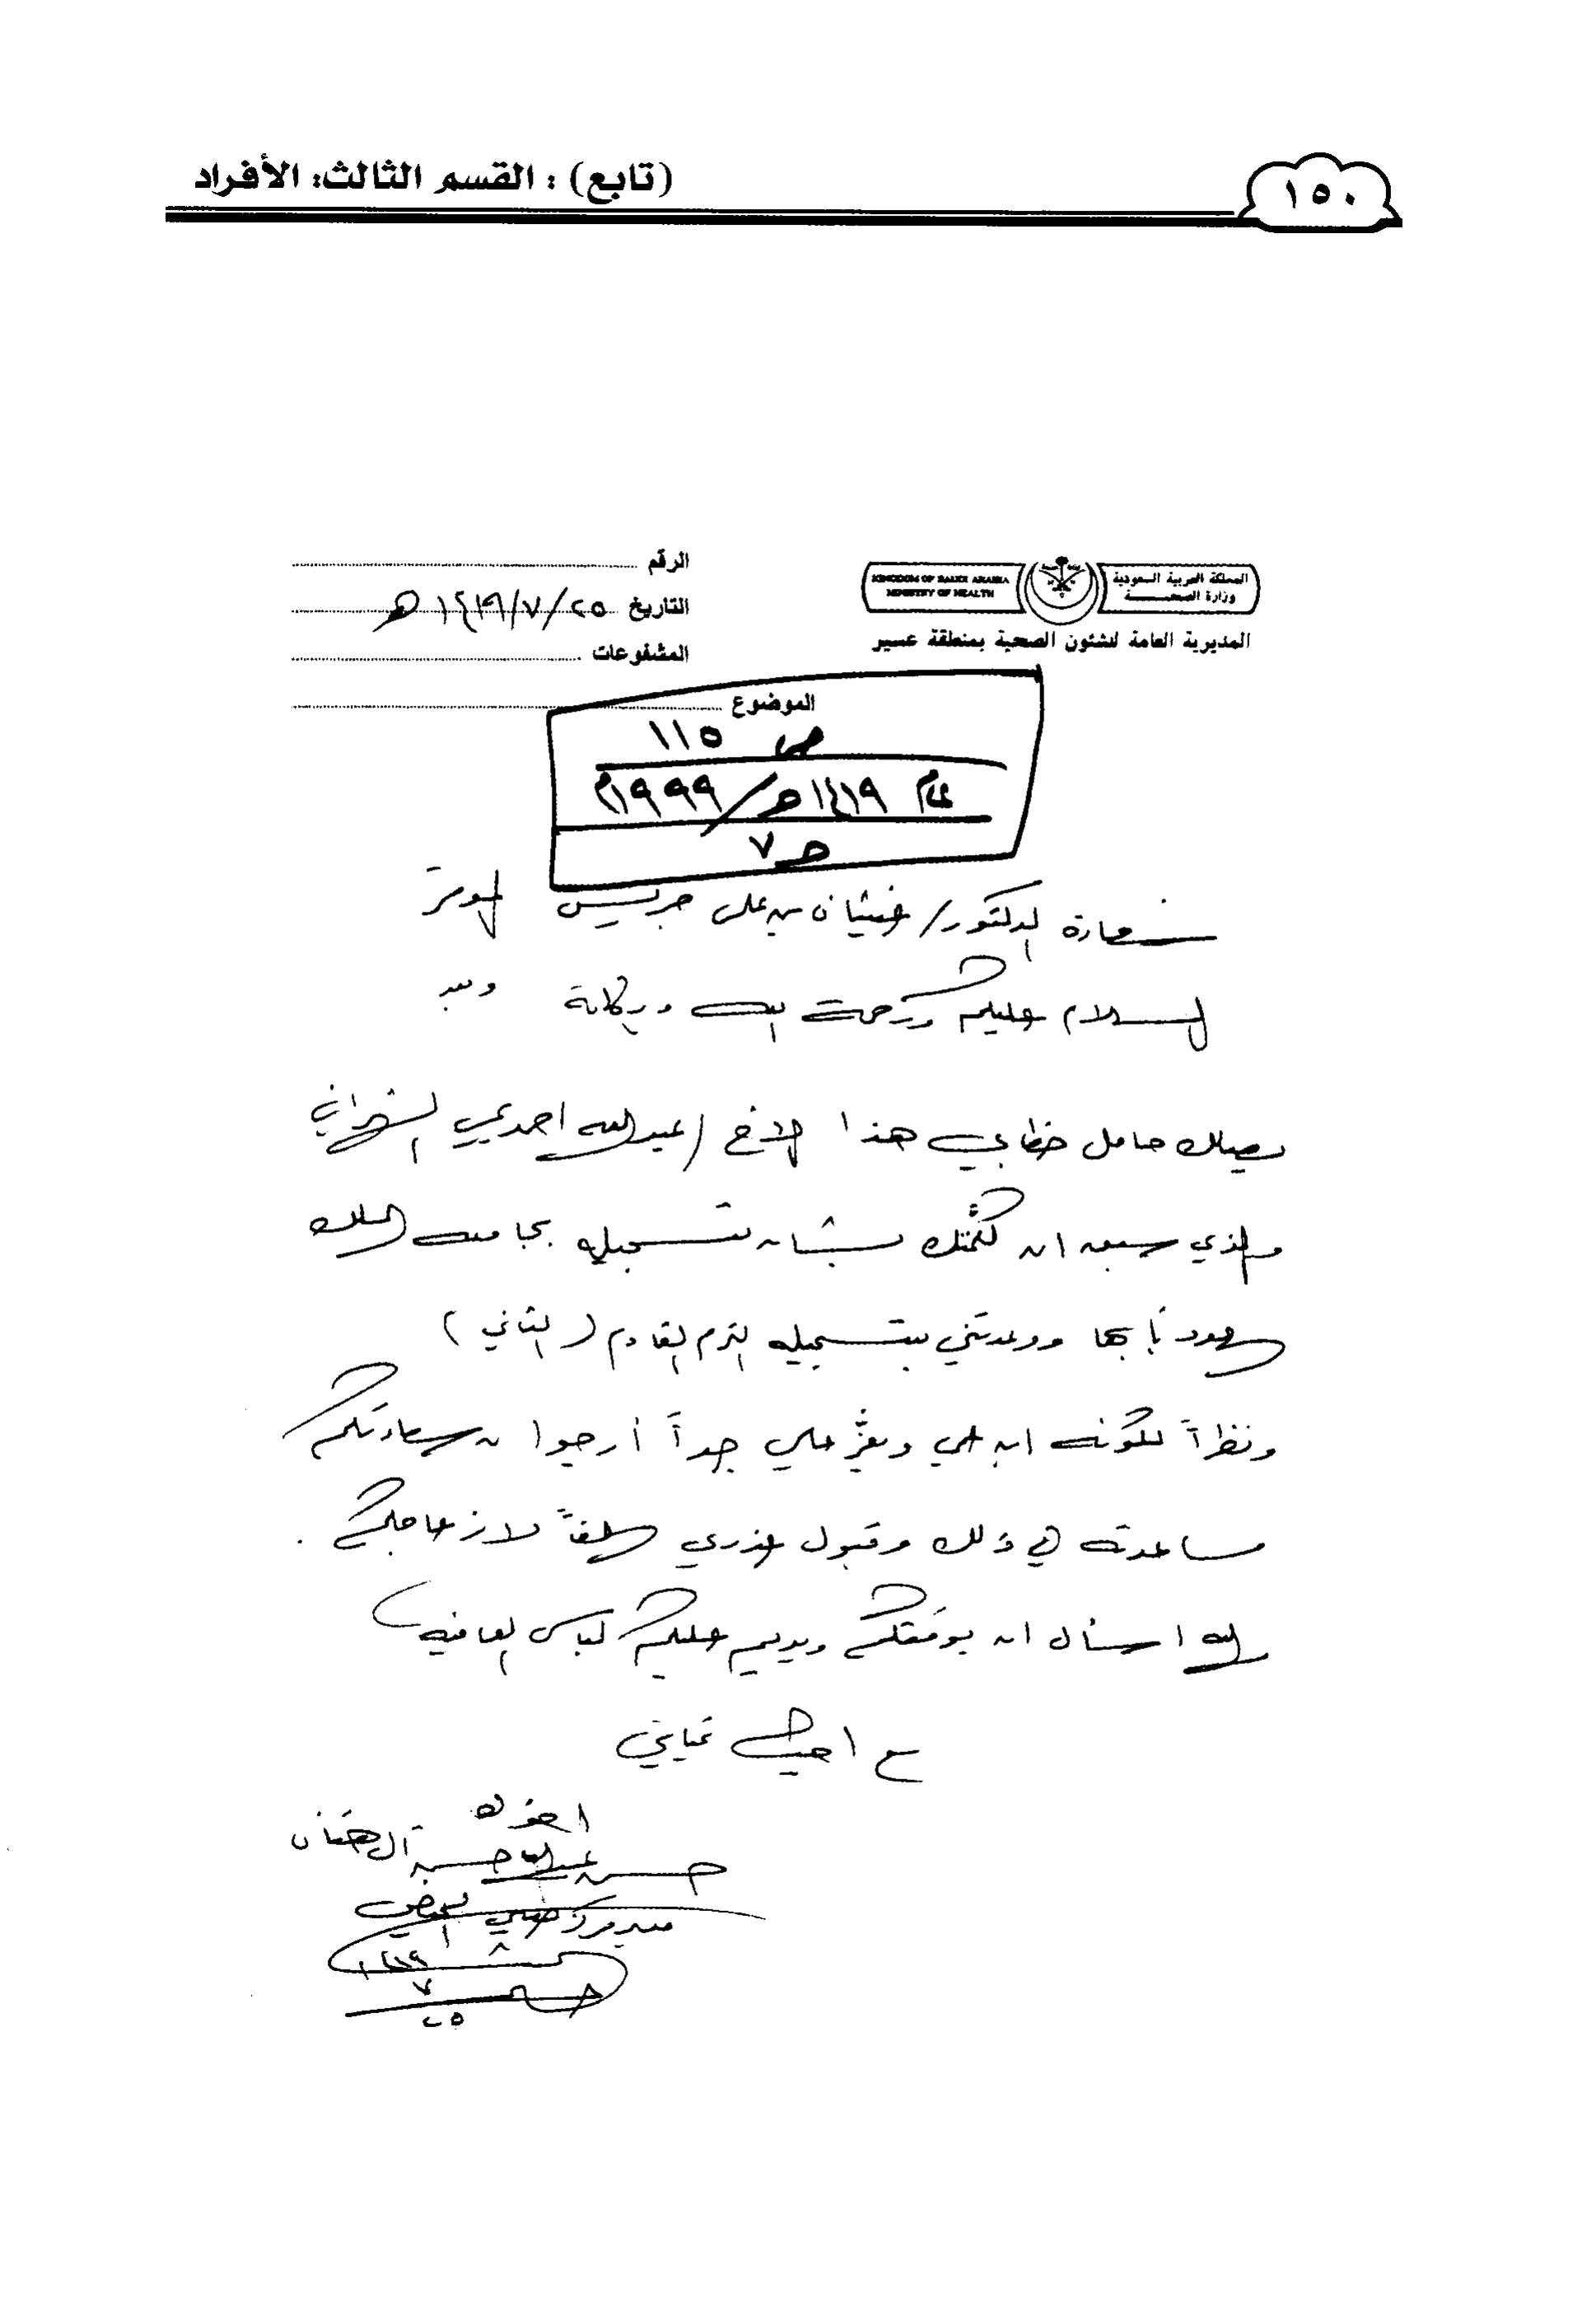 (تابع) : القسم الثالث: الأفراد
١٥٠
المملكة العربية السعودية
وزارة الصحة
KINGDOM OF SAUDI ARABIA
MINISTRY OF HEALTH
المديرية العامة للشئون الصحية بمنطقة عسير
الرقم
التاريخ ٢٥/٧/١٤١٩هـ
المشفوعات
الموضوع
ص ١١٥
عام ١٤١٩هـ/١٩٩٩م
ج٧
سعادة الدكتور/ غيثان بن علي جريس الموقر
السلام عليكم ورحمة الله وبركاته وبعد
يصلك حامل خطابي هذا الاخ (عبدالله احمد الشهراني
والذي سبق ان كلمتك بشأن تسجيله بجامعة الملك
سعود بأبها ووعدتني بتسجيله الترم القادم (الثاني)
ونظراً لكونه ابن عمي ويعز علي جداً أرجوا من سعادتكم
مساعدته في ذلك وقبول عذري سلفاً لازعاجكم .
الله اسأل ان يوفقكم ويديم عليكم لباس العافيه
مع اطيب تحياتي
اخوك
حسن عبدالله آل
مدير مركز صحي
١٤١٩
٧
٢٥